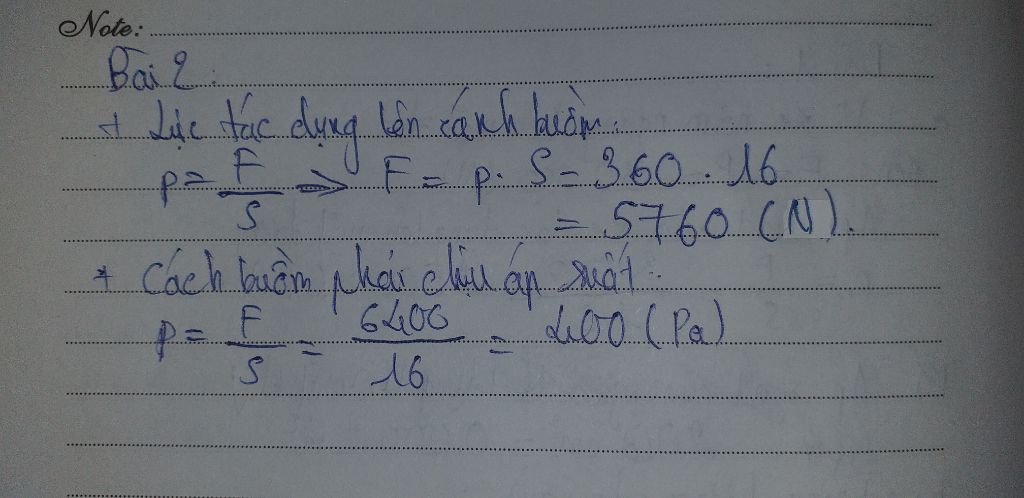 Note:
Bài 2:
+ Lực tác dụng lên cánh buồm:
p = F/S => F = p. S = 360 . 16
= 5760 (N).
+ Cách buồm phải chịu áp suất:
p = F/S = 6400/16 = 400 (Pa)